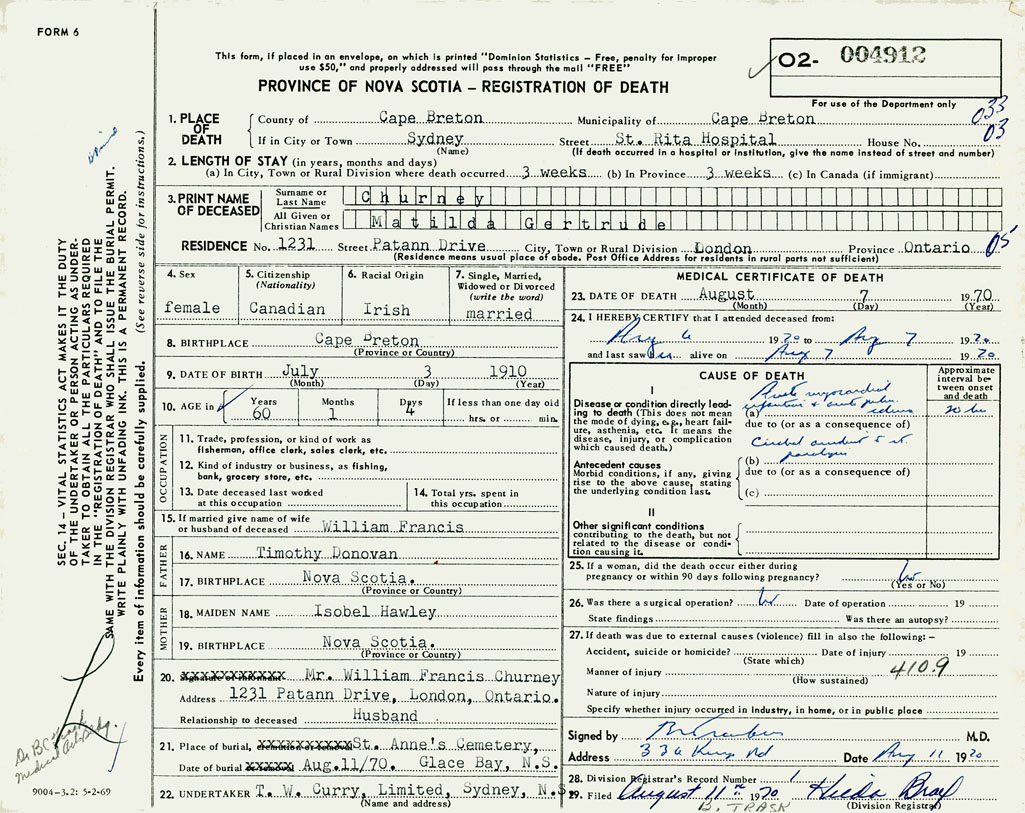 FORM 6
This form, if placed in an envelope, on which is printed "Dominion Statistics – Free, penalty for improper
use $50," and properly addressed will pass through the mail "FREE"
PROVINCE OF NOVA SCOTIA – REGISTRATION OF DEATH
O2- 004912
For use of the Department only
033
03
1. PLACE OF DEATH
County of Cape Breton Municipality of Cape Breton
If in City or Town Sydney Street St. Rita Hospital House No.
(Name) (If death occurred in a hospital or institution, give the name instead of street and number)
2. LENGTH OF STAY (in years, months and days)
(a) In City, Town or Rural Division where death occurred 3 weeks (b) In Province 3 weeks (c) In Canada (if immigrant)
3. PRINT NAME OF DECEASED
Surname or Last Name Churney
All Given or Christian Names Matilda Gertrude
RESIDENCE No. 1231 Street Patann Drive City, Town or Rural Division London Province Ontario 05
(Residence means usual place of abode. Post Office Address for residents in rural parts not sufficient)
4. Sex
female
5. Citizenship
(Nationality)
Canadian
6. Racial Origin
Irish
7. Single, Married,
Widowed or Divorced
(write the word)
married
8. BIRTHPLACE Cape Breton
(Province or Country)
9. DATE OF BIRTH July 3 1910
(Month) (Day) (Year)
10. AGE in Years Months Days If less than one day old
60 1 4 hrs. or min.
OCCUPATION
11. Trade, profession, or kind of work as
fisherman, office clerk, sales clerk, etc.
12. Kind of industry or business, as fishing,
bank, grocery store, etc.
13. Date deceased last worked
at this occupation
14. Total yrs. spent in
this occupation
15. If married give name of wife
or husband of deceased William Francis
FATHER
16. NAME Timothy Donovan
17. BIRTHPLACE Nova Scotia.
(Province or Country)
MOTHER
18. MAIDEN NAME Isobel Hawley
19. BIRTHPLACE Nova Scotia.
(Province or Country)
20. Mr. William Francis Churney
Address 1231 Patann Drive, London, Ontario.
Relationship to deceased Husband
21. Place of burial, St. Anne's Cemetery,
Date of burial Aug.11/70. Glace Bay, N.S.
22. UNDERTAKER T. W. Curry, Limited, Sydney, N.S.
(Name and address)
MEDICAL CERTIFICATE OF DEATH
23. DATE OF DEATH August 7 1970
(Month) (Day) (Year)
24. I HEREBY CERTIFY that I attended deceased from:
Aug 6 1970 to Aug 7 1970
and last saw alive on Aug 7 1970
CAUSE OF DEATH
Approximate
interval be-
tween onset
and death
I
Disease or condition directly lead-
ing to death (This does not mean
the mode of dying, e.g., heart fail-
ure, asthenia, etc. It means the
disease, injury, or complication
which caused death.)
Acute myocardial
(a) infarction
due to (or as a consequence of)
(b)
Antecedent causes
Morbid conditions, if any, giving
rise to the above cause, stating
the underlying condition last.
due to (or as a consequence of)
(c)
II
Other significant conditions
contributing to the death, but not
related to the disease or condi-
tion causing it.
25. If a woman, did the death occur either during
pregnancy or within 90 days following pregnancy?
(Yes or No)
26. Was there a surgical operation? Date of operation 19
State findings Was there an autopsy?
27. If death was due to external causes (violence) fill in also the following: –
Accident, suicide or homicide? Date of injury 19
(State which)
Manner of injury 410.9
(How sustained)
Nature of injury
Specify whether injury occurred in industry, in home, or in public place
Signed by M.D.
Address Date Aug 11 1970
28. Division Registrar's Record Number 1
29. Filed August 11th 1970 Hilda Bray
B. TRASK (Division Registrar)
SEC. 14 – VITAL STATISTICS ACT MAKES IT THE DUTY
OF THE UNDERTAKER OR PERSON ACTING AS UNDER-
TAKER TO OBTAIN ALL THE PARTICULARS REQUIRED
IN THE "REGISTRATION OF DEATH" AND TO FILE THE
SAME WITH THE DIVISION REGISTRAR WHO SHALL ISSUE THE BURIAL PERMIT.
WRITE PLAINLY WITH UNFADING INK. THIS IS A PERMANENT RECORD.
Every item of information should be carefully supplied. (See reverse side for instructions.)
9004-3.2: 5-2-69